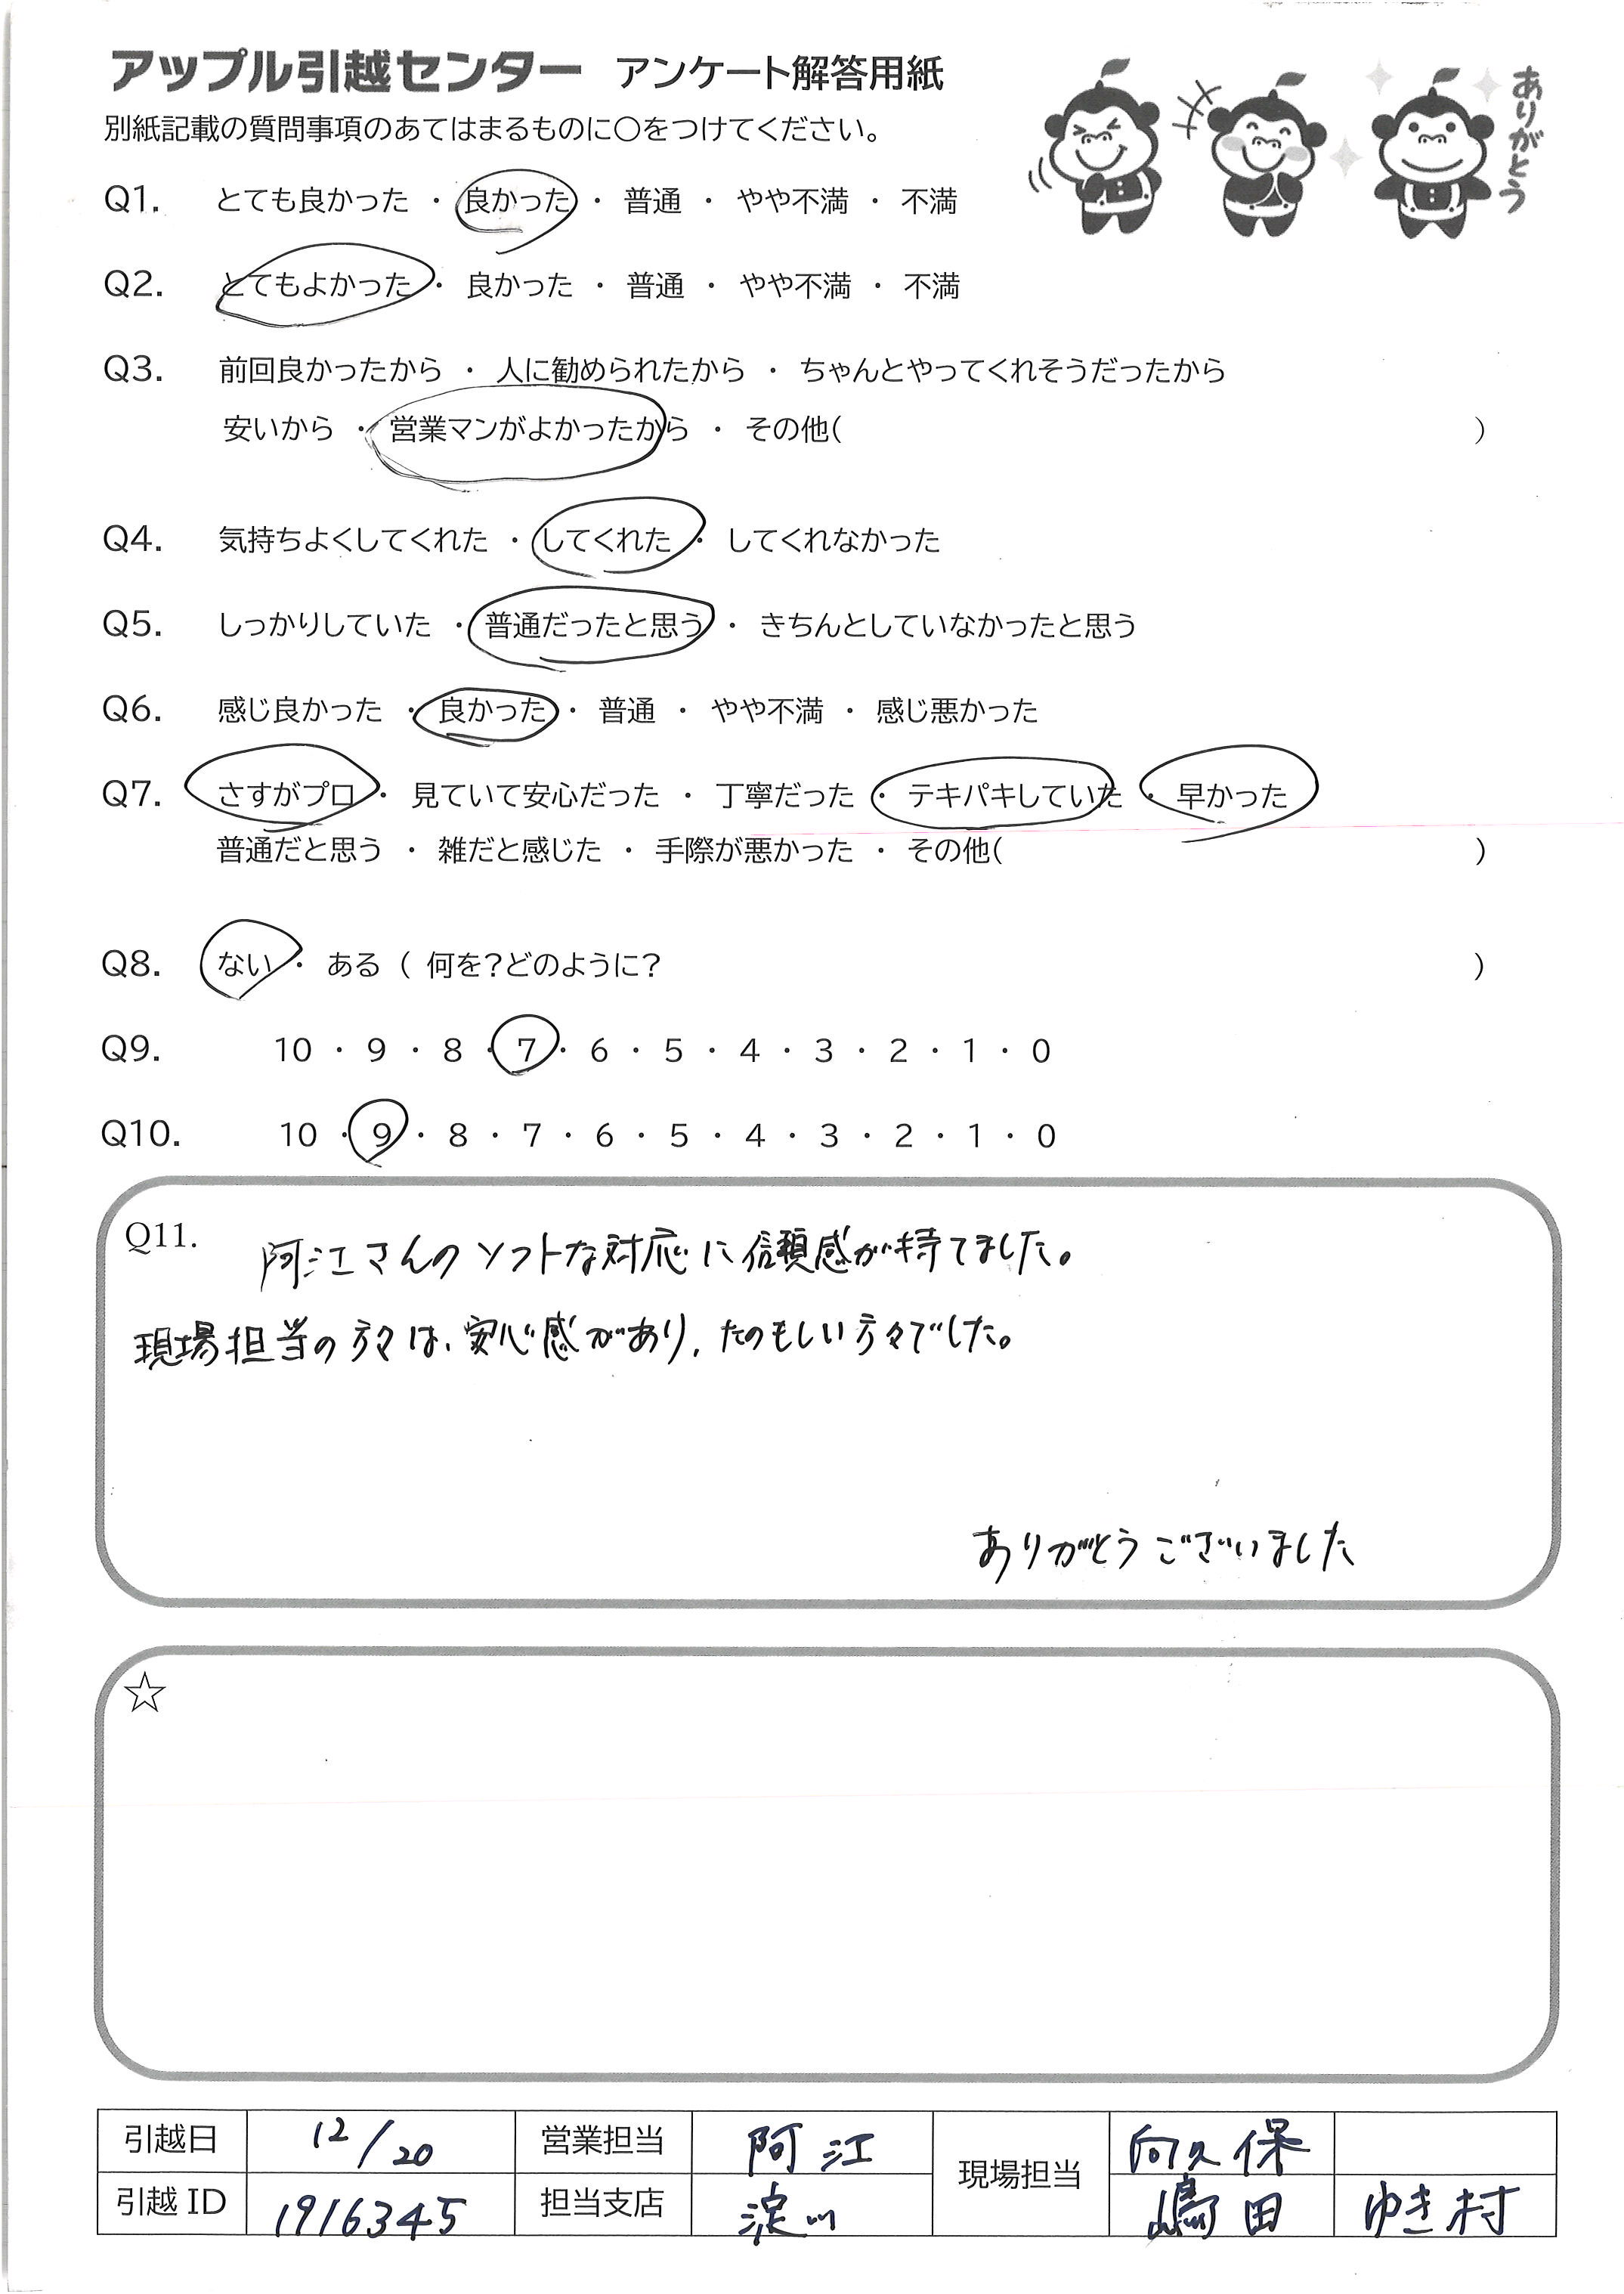 アップル引越センター アンケート解答用紙
ありがとう
別紙記載の質問事項のあてはまるものに○をつけてください。
Q1. とても良かった ・ 良かった ・ 普通 ・ やや不満 ・ 不満
Q2. とてもよかった ・ 良かった ・ 普通 ・ やや不満 ・ 不満
Q3. 前回良かったから ・ 人に勧められたから ・ ちゃんとやってくれそうだったから
安いから ・ 営業マンがよかったから ・ その他( )
Q4. 気持ちよくしてくれた ・ してくれた ・ してくれなかった
Q5. しっかりしていた ・ 普通だったと思う ・ きちんとしていなかったと思う
Q6. 感じ良かった ・ 良かった ・ 普通 ・ やや不満 ・ 感じ悪かった
Q7. さすがプロ ・ 見ていて安心だった ・ 丁寧だった ・ テキパキしていた ・ 早かった
普通だと思う ・ 雑だと感じた ・ 手際が悪かった ・ その他( )
Q8. ない ・ ある ( 何を?どのように? )
Q9. 10 ・ 9 ・ 8 ・ 7 ・ 6 ・ 5 ・ 4 ・ 3 ・ 2 ・ 1 ・ 0
Q10. 10 ・ 9 ・ 8 ・ 7 ・ 6 ・ 5 ・ 4 ・ 3 ・ 2 ・ 1 ・ 0
Q11. 阿江さんのソフトな対応に信頼感が持てました。
現場担当の方々は、安心感があり、たのもしい方々でした。
ありがとうございました
☆
引越日 12/20 営業担当 阿江 現場担当 向久保
引越ID 1916345 担当支店 淀川 嶋田 ゆき村